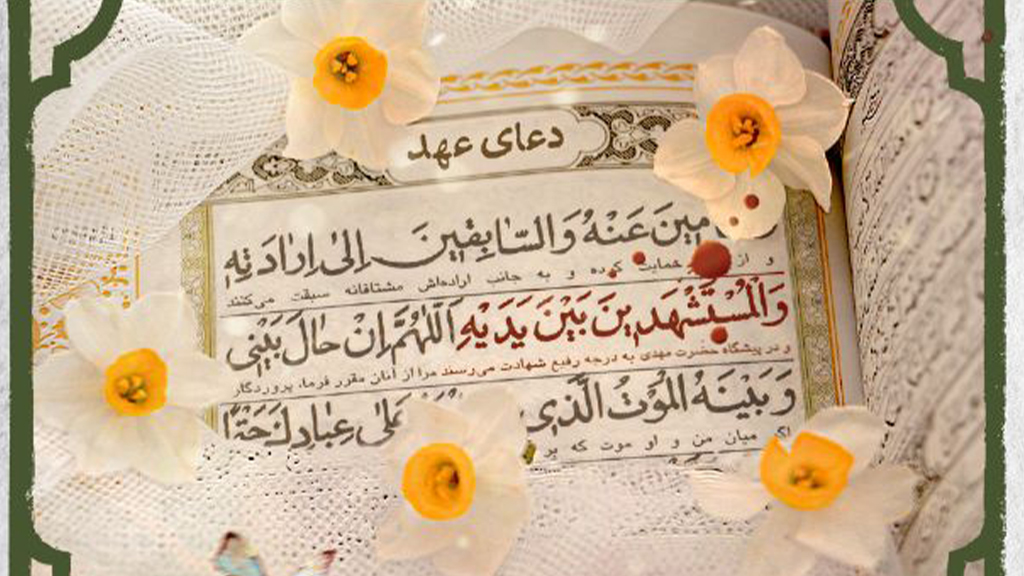 دعای عهد
عَنْهُ وَالسّابِقینَ اِلیٰ اِرادَتِهِ
و از حمایت کرده و به جانب اراده‌اش مشتاقانه سبقت می‌کنند
وَالْمُسْتَشْهَدینَ بَیْنَ یَدَیْهِ اَللّٰهُمَّ اِنْ حالَ بَیْنی
و در پیشگاه حضرت مهدی به درجه رفیع شهادت می‌رسند مرا از آنان مقرر فرما، پروردگار
وَ بَیْنَهُ الْمَوْتُ الَّذی عَلیٰ عِبادِكَ حَتْمًا
میان من و او موت که بر